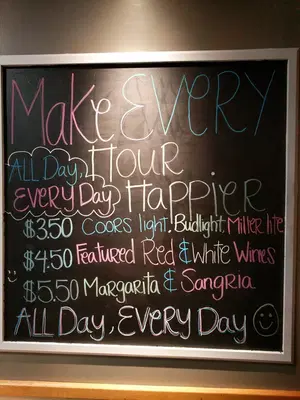 Make EVERY
ALL DAY, HOUR
EVERY DAY HAPPIER
$3.50 COORS light, Budlight, Miller lite
$4.50 Featured Red & White Wines
$5.50 Margarita & Sangria
ALL DAY, EVERY DAY